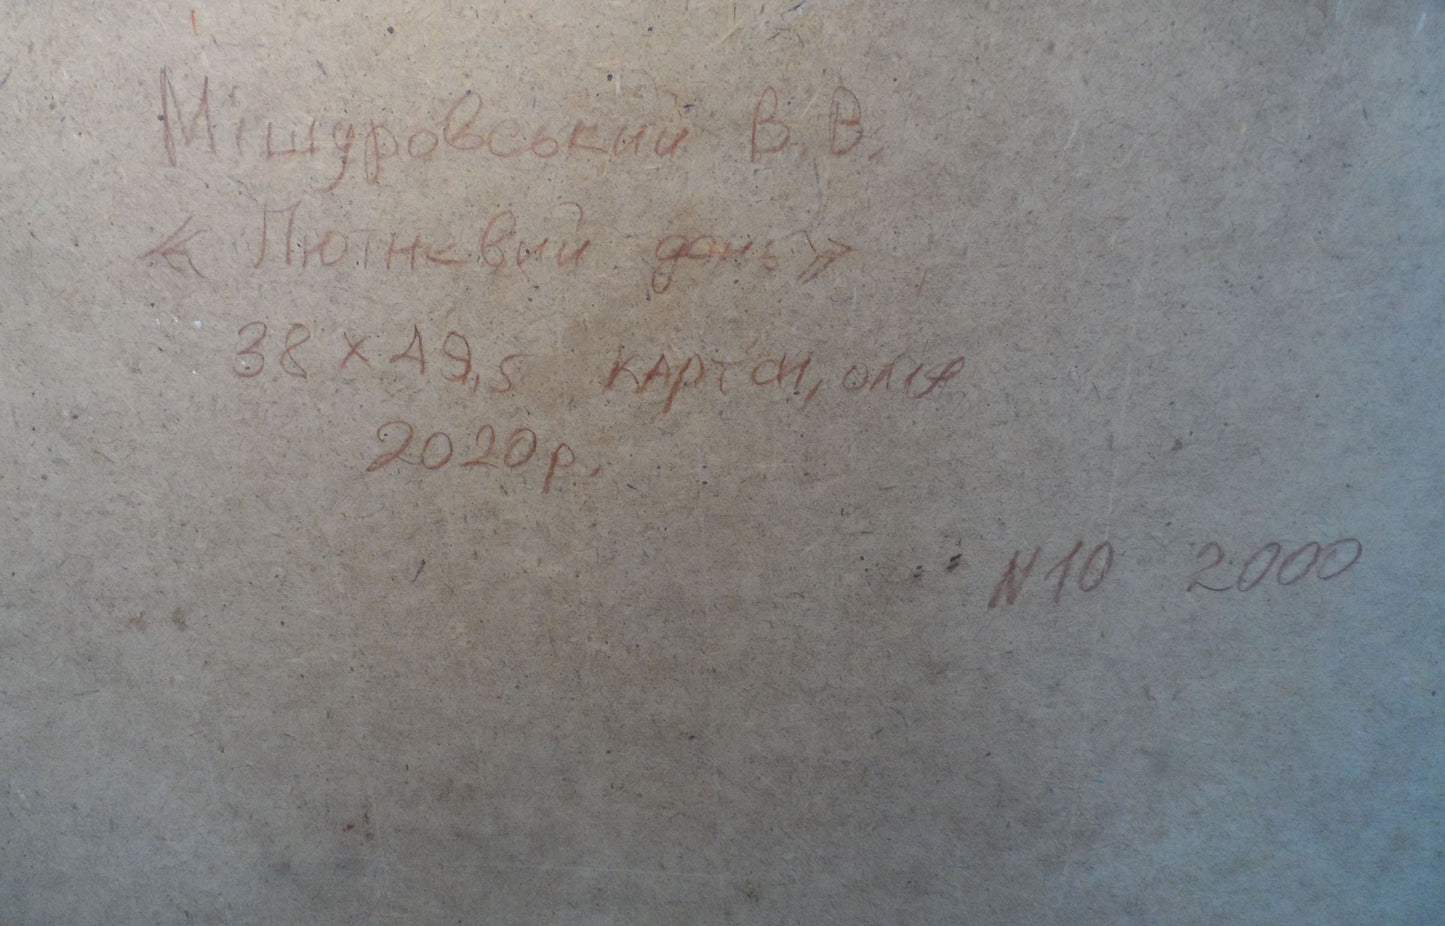 Мішуровський В.В.
«Лютневий день»
38×49,5 картон, олія
2020р.
N10 2000